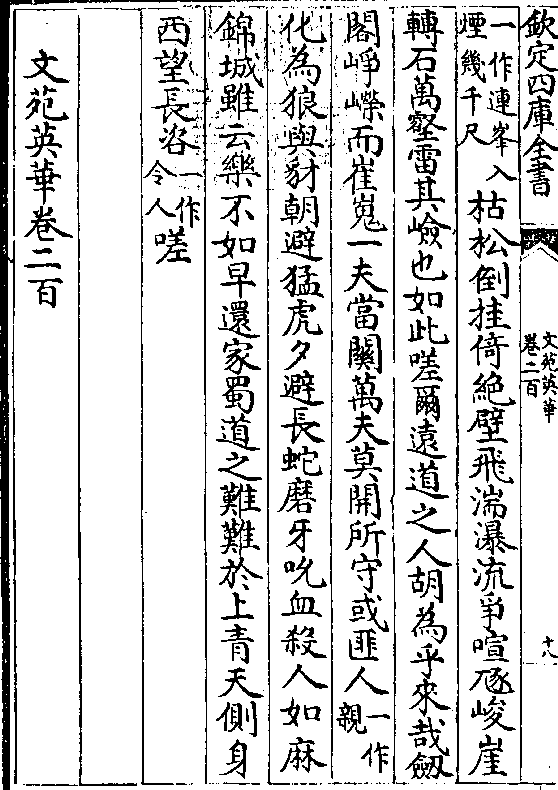 欽定四庫全書
文苑英華
卷二百
十八
一作連峯入
煙幾千尺
枯松倒挂倚絶壁飛湍瀑流爭喧豗峻崖
轉石萬壑雷其嶮也如此嗟爾遠道之人胡為乎來哉劒
閣崢嶸而崔嵬一夫當關萬夫莫開所守或匪人一作
親
化為狼與豺朝避猛虎夕避長蛇磨牙吮血殺人如麻
錦城雖云樂不如早還家蜀道之難難於上青天側身
西望長咨一作
令人
嗟
文苑英華卷二百